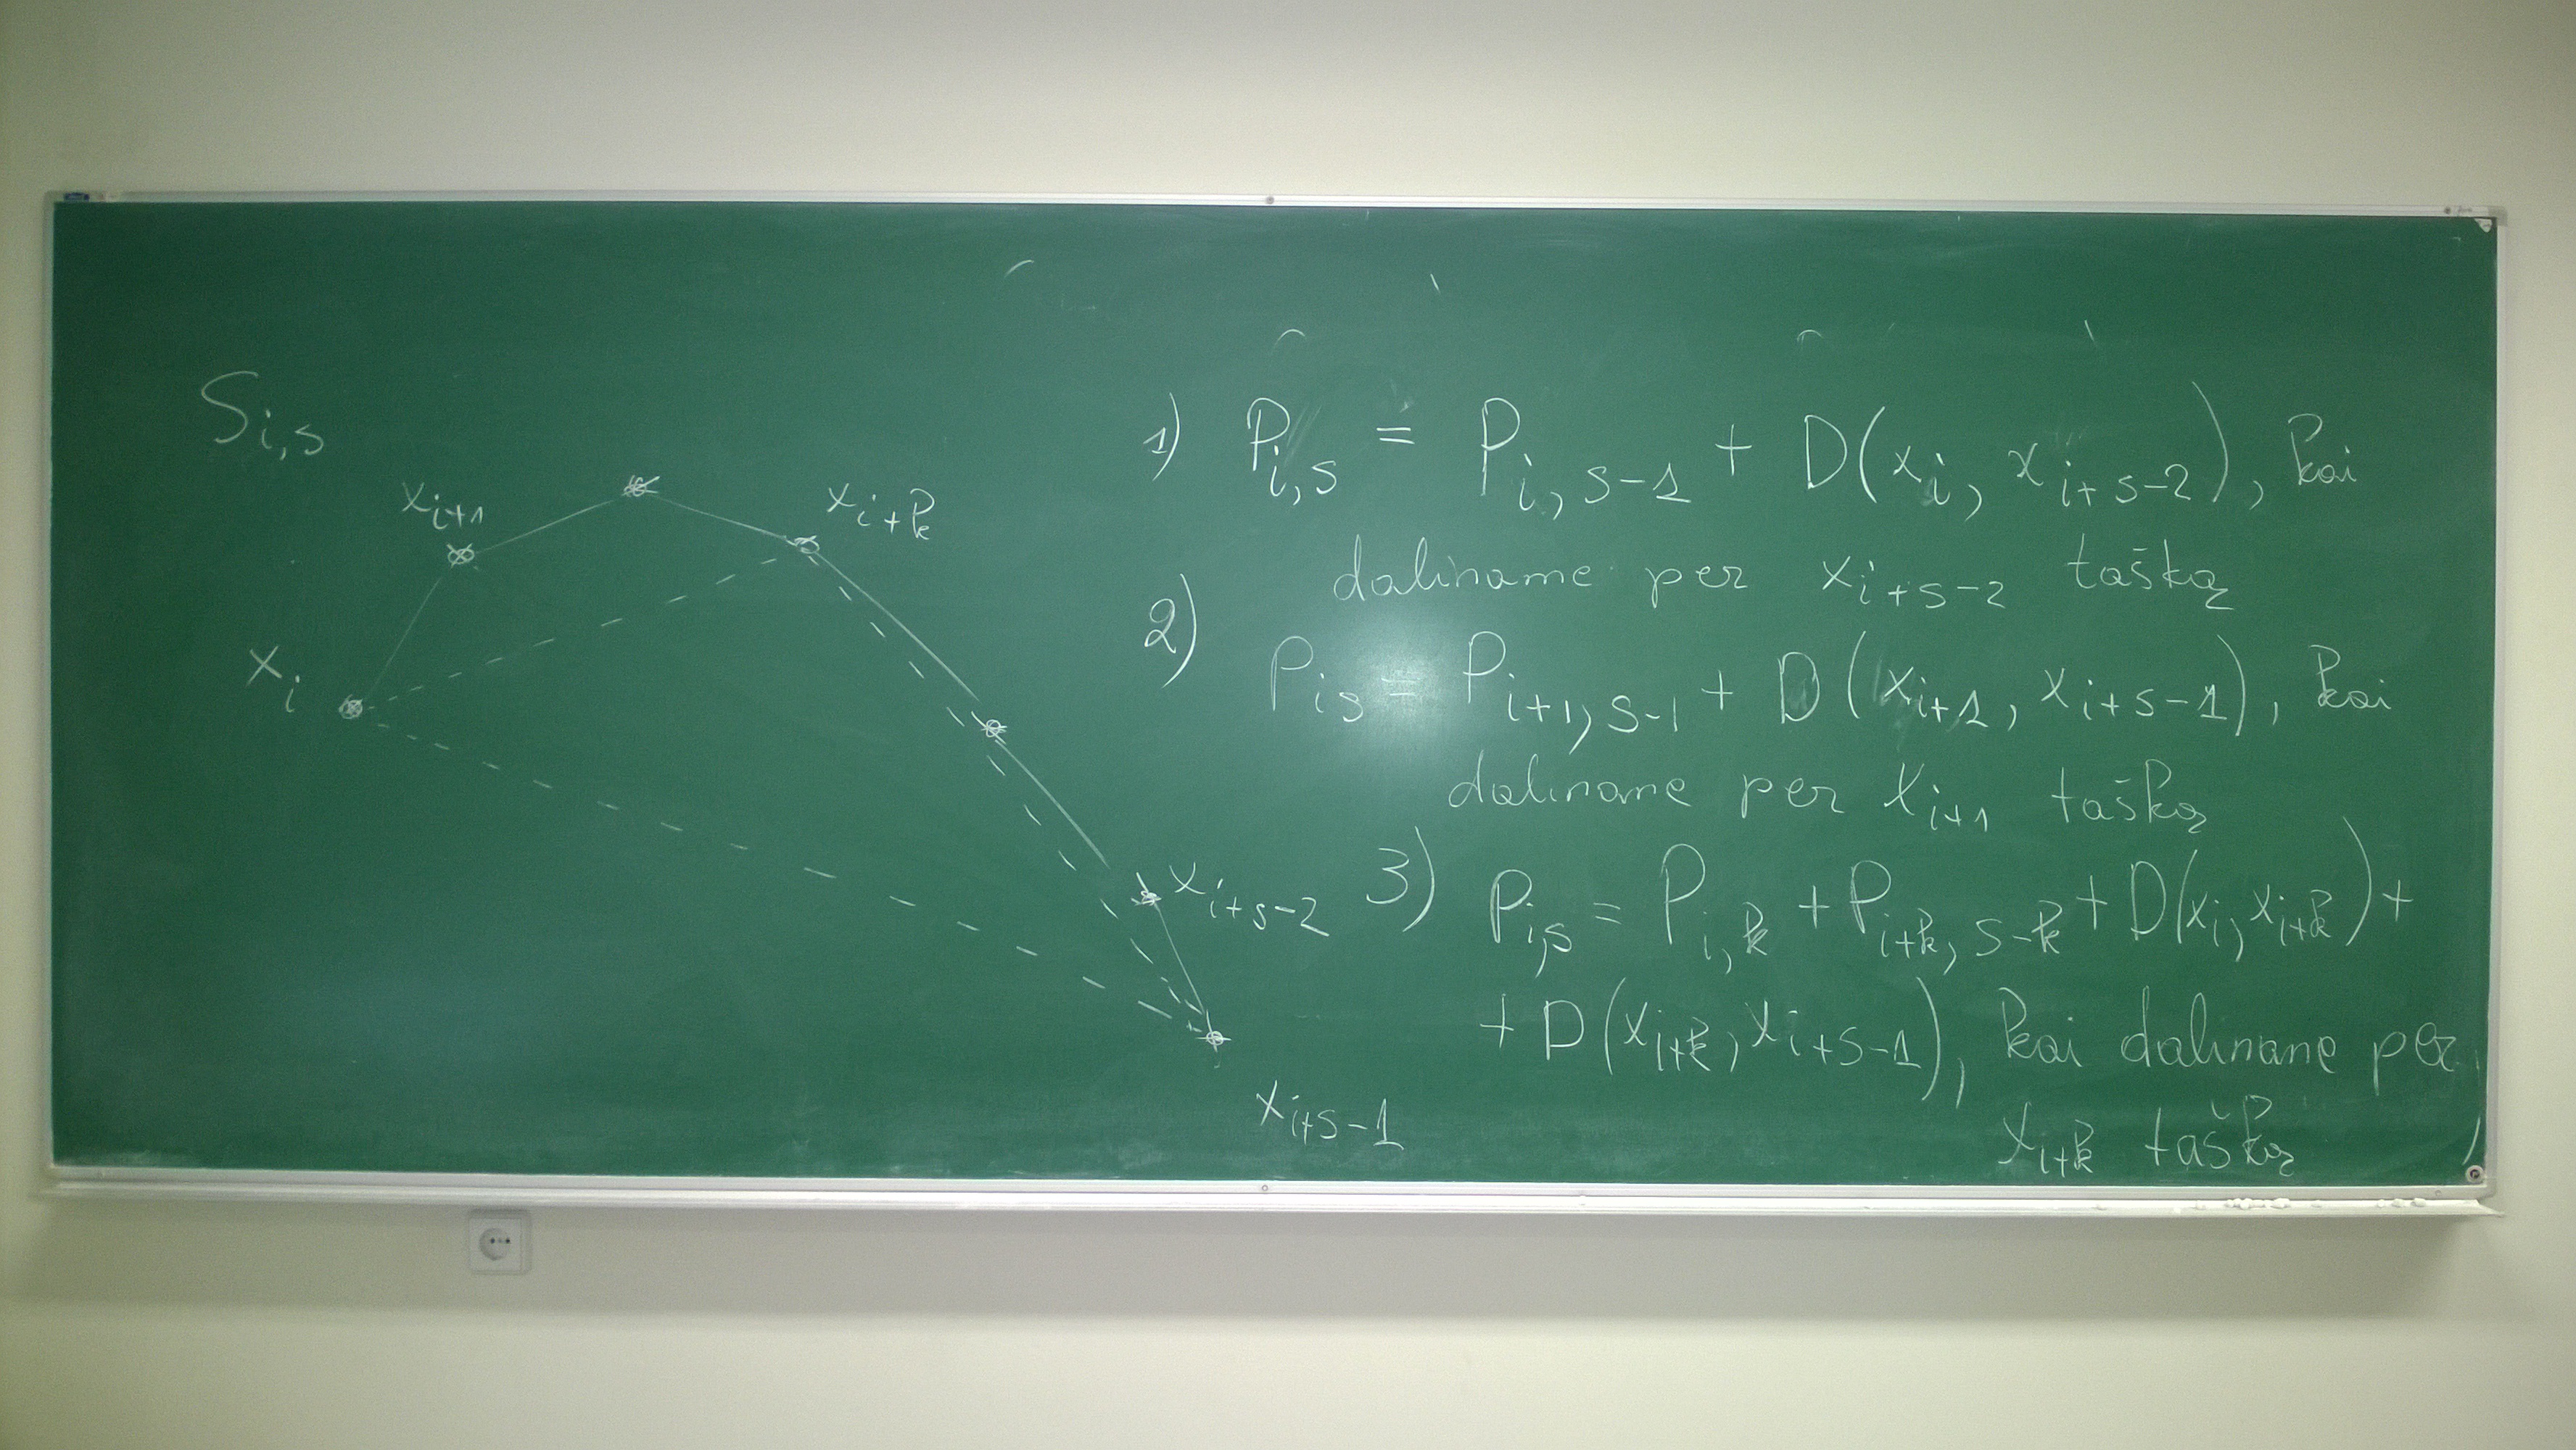 S_{i,s}
x_{i+1}
x_{i+k}
x_i
x_{i+s-2}
x_{i+s-1}
1) P_{i,s} = P_{i,s-1} + D(x_i, x_{i+s-2}), kai
daliname per x_{i+s-2} tašką
2) P_{is} = P_{i+1,s-1} + D(x_{i+1}, x_{i+s-1}), kai
daliname per x_{i+1} tašką
3) P_{i,s} = P_{i,k} + P_{i+k,s-k} + D(x_i, x_{i+k}) +
+ D(x_{i+k}, x_{i+s-1}), kai daliname per
x_{i+k} tašką